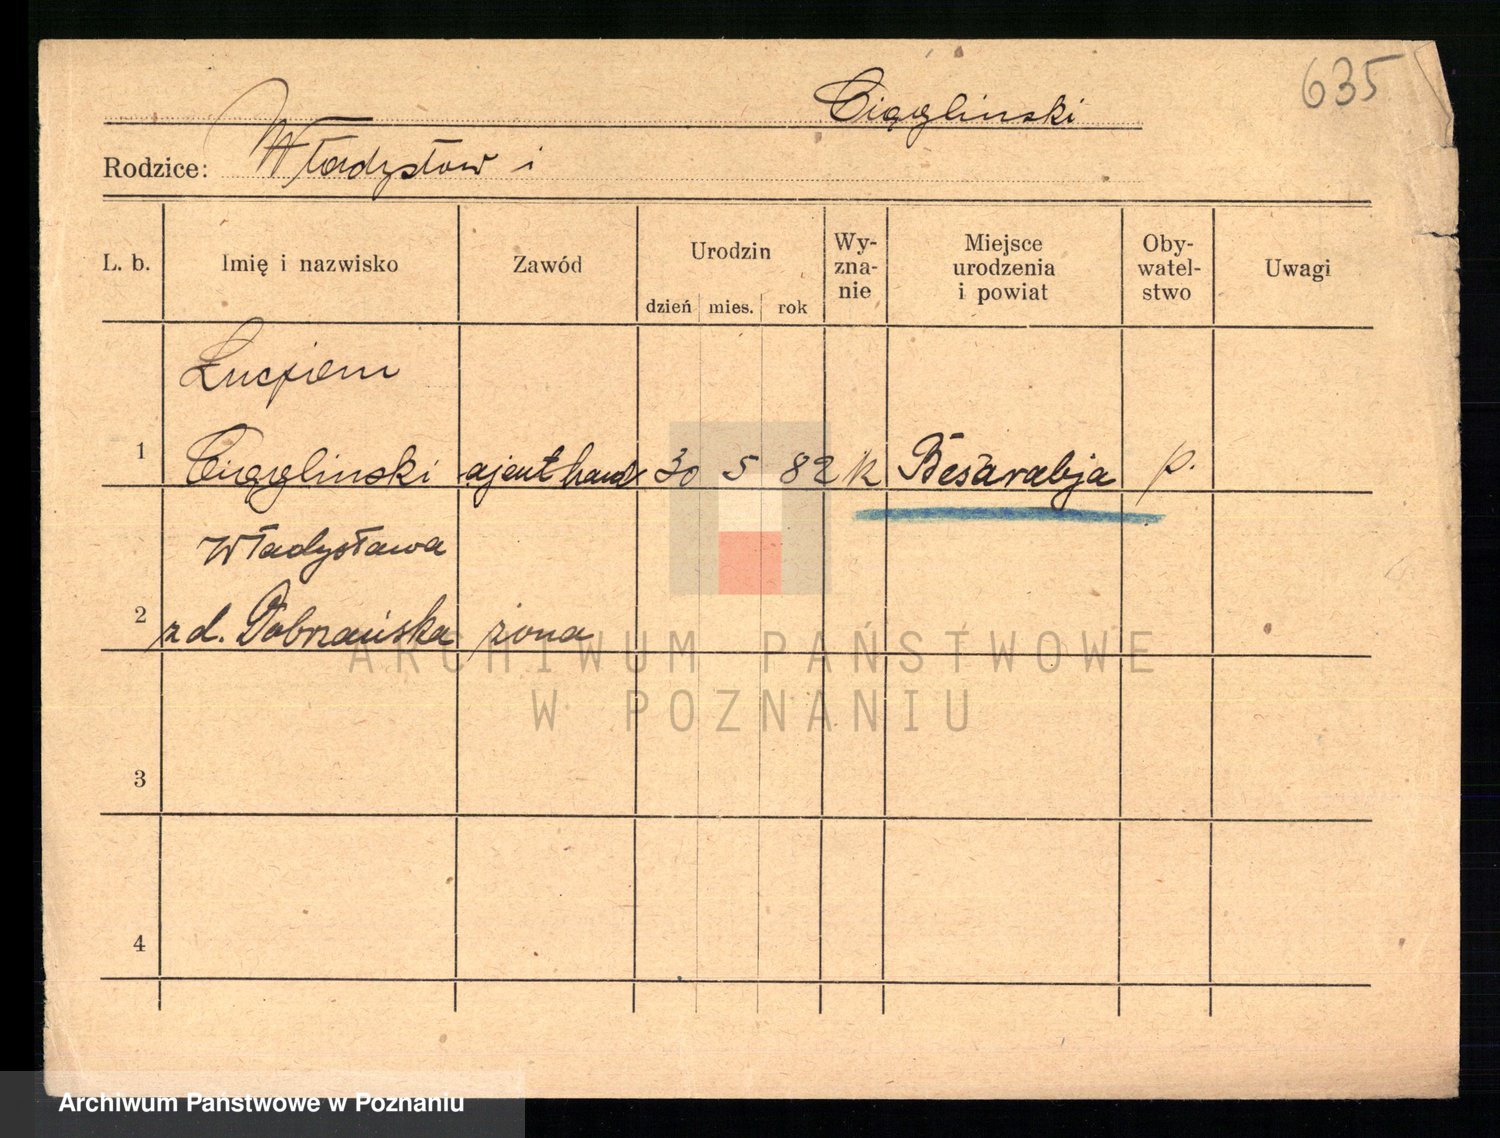 635
Ciągliński
Rodzice: Władysław i
L. b. Imię i nazwisko Zawód Urodzin Wy-zna-nie Miejsce urodzenia i powiat Oby-watel-stwo Uwagi
dzień mies. rok
Lucjan
1 Ciągliński ajent hand 30 5 82 k Besarabja p.
Władysława
2 z d. Dobrzańska żona
3
4
ARCHIWUM PAŃSTWOWE
W POZNANIU
Archiwum Państwowe w Poznaniu